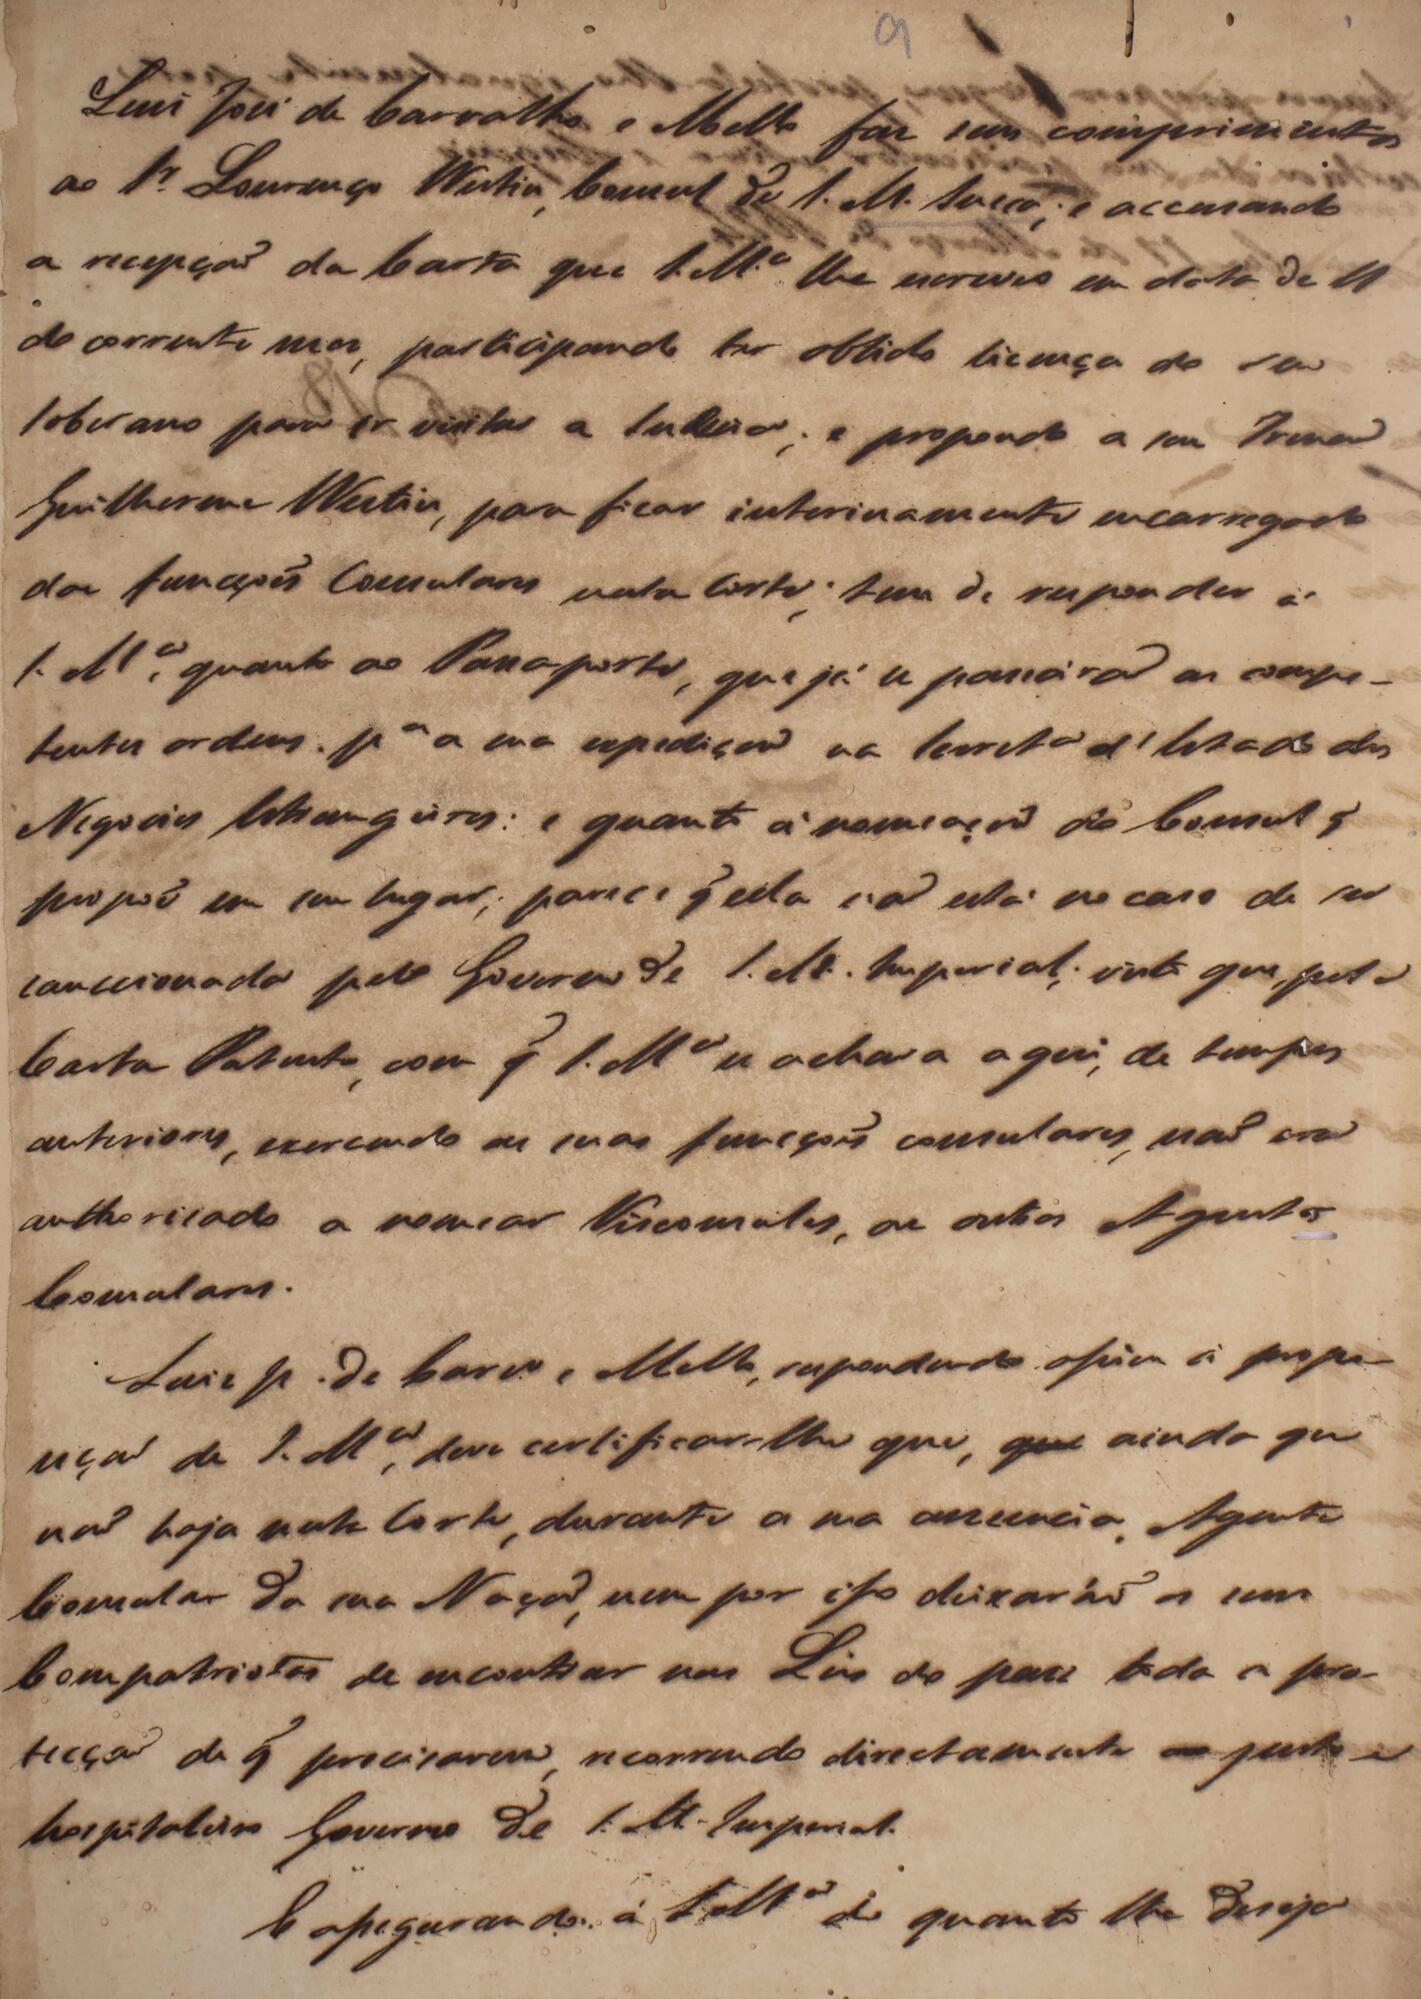 9
Luis José de Carvalho e Mello faz seus comprimentos
ao Sr. Lourenço Westin, Consul de S. M. Sueca; e accusando
a recepçaõ da Carta que S. M.ce lhe escreveo em data de 11
do corrente mez, participando ter obtido licença do seu
Soberano para ir visitar a Suecia; e propondo a seu Irmaõ
Guilherme Westin, para ficar interinamente encarregado
das funcçoẽs Consulares nesta Corte; tem de responder á
S. M.ce, quanto ao Passaporte, que já se passáraõ as compe-
tentes ordens p.a a sua expediçaõ na Secret.a d'Estado dos
Negocios Estrangeiros: e quanto á nomeaçaõ do Consul q̃
propoẽ em seu lugar, parece q̃ esta naõ está no caso de ser
sanccionada pelo Governo de S. M. Imperial; visto que, pela
Carta Patente, com q̃ S. M.ce se achava aqui, de tempos
anteriores, exercendo as suas funcçoẽs consulares, naõ era
authorisado a nomear Visconsules, ou outros Agentes
Consulares.
Luiz J. de Carv.o e Mello, respondendo assim á propo-
siçaõ de S. M.ce, deve certificar-lhe que, que ainda que
naõ haja nesta Corte, durante a sua ausencia, Agente
Consular da sua Naçaõ, nem por isso deixaráõ os seus
Compatriotas de encontrar nas Leis do paiz toda a pro-
tecçaõ de q̃ precisarem, recorrendo directamente ao justo e
hospitaleiro Governo de S. M. Imperial.
E assegurando á S. M.ce do quanto lhe deseja